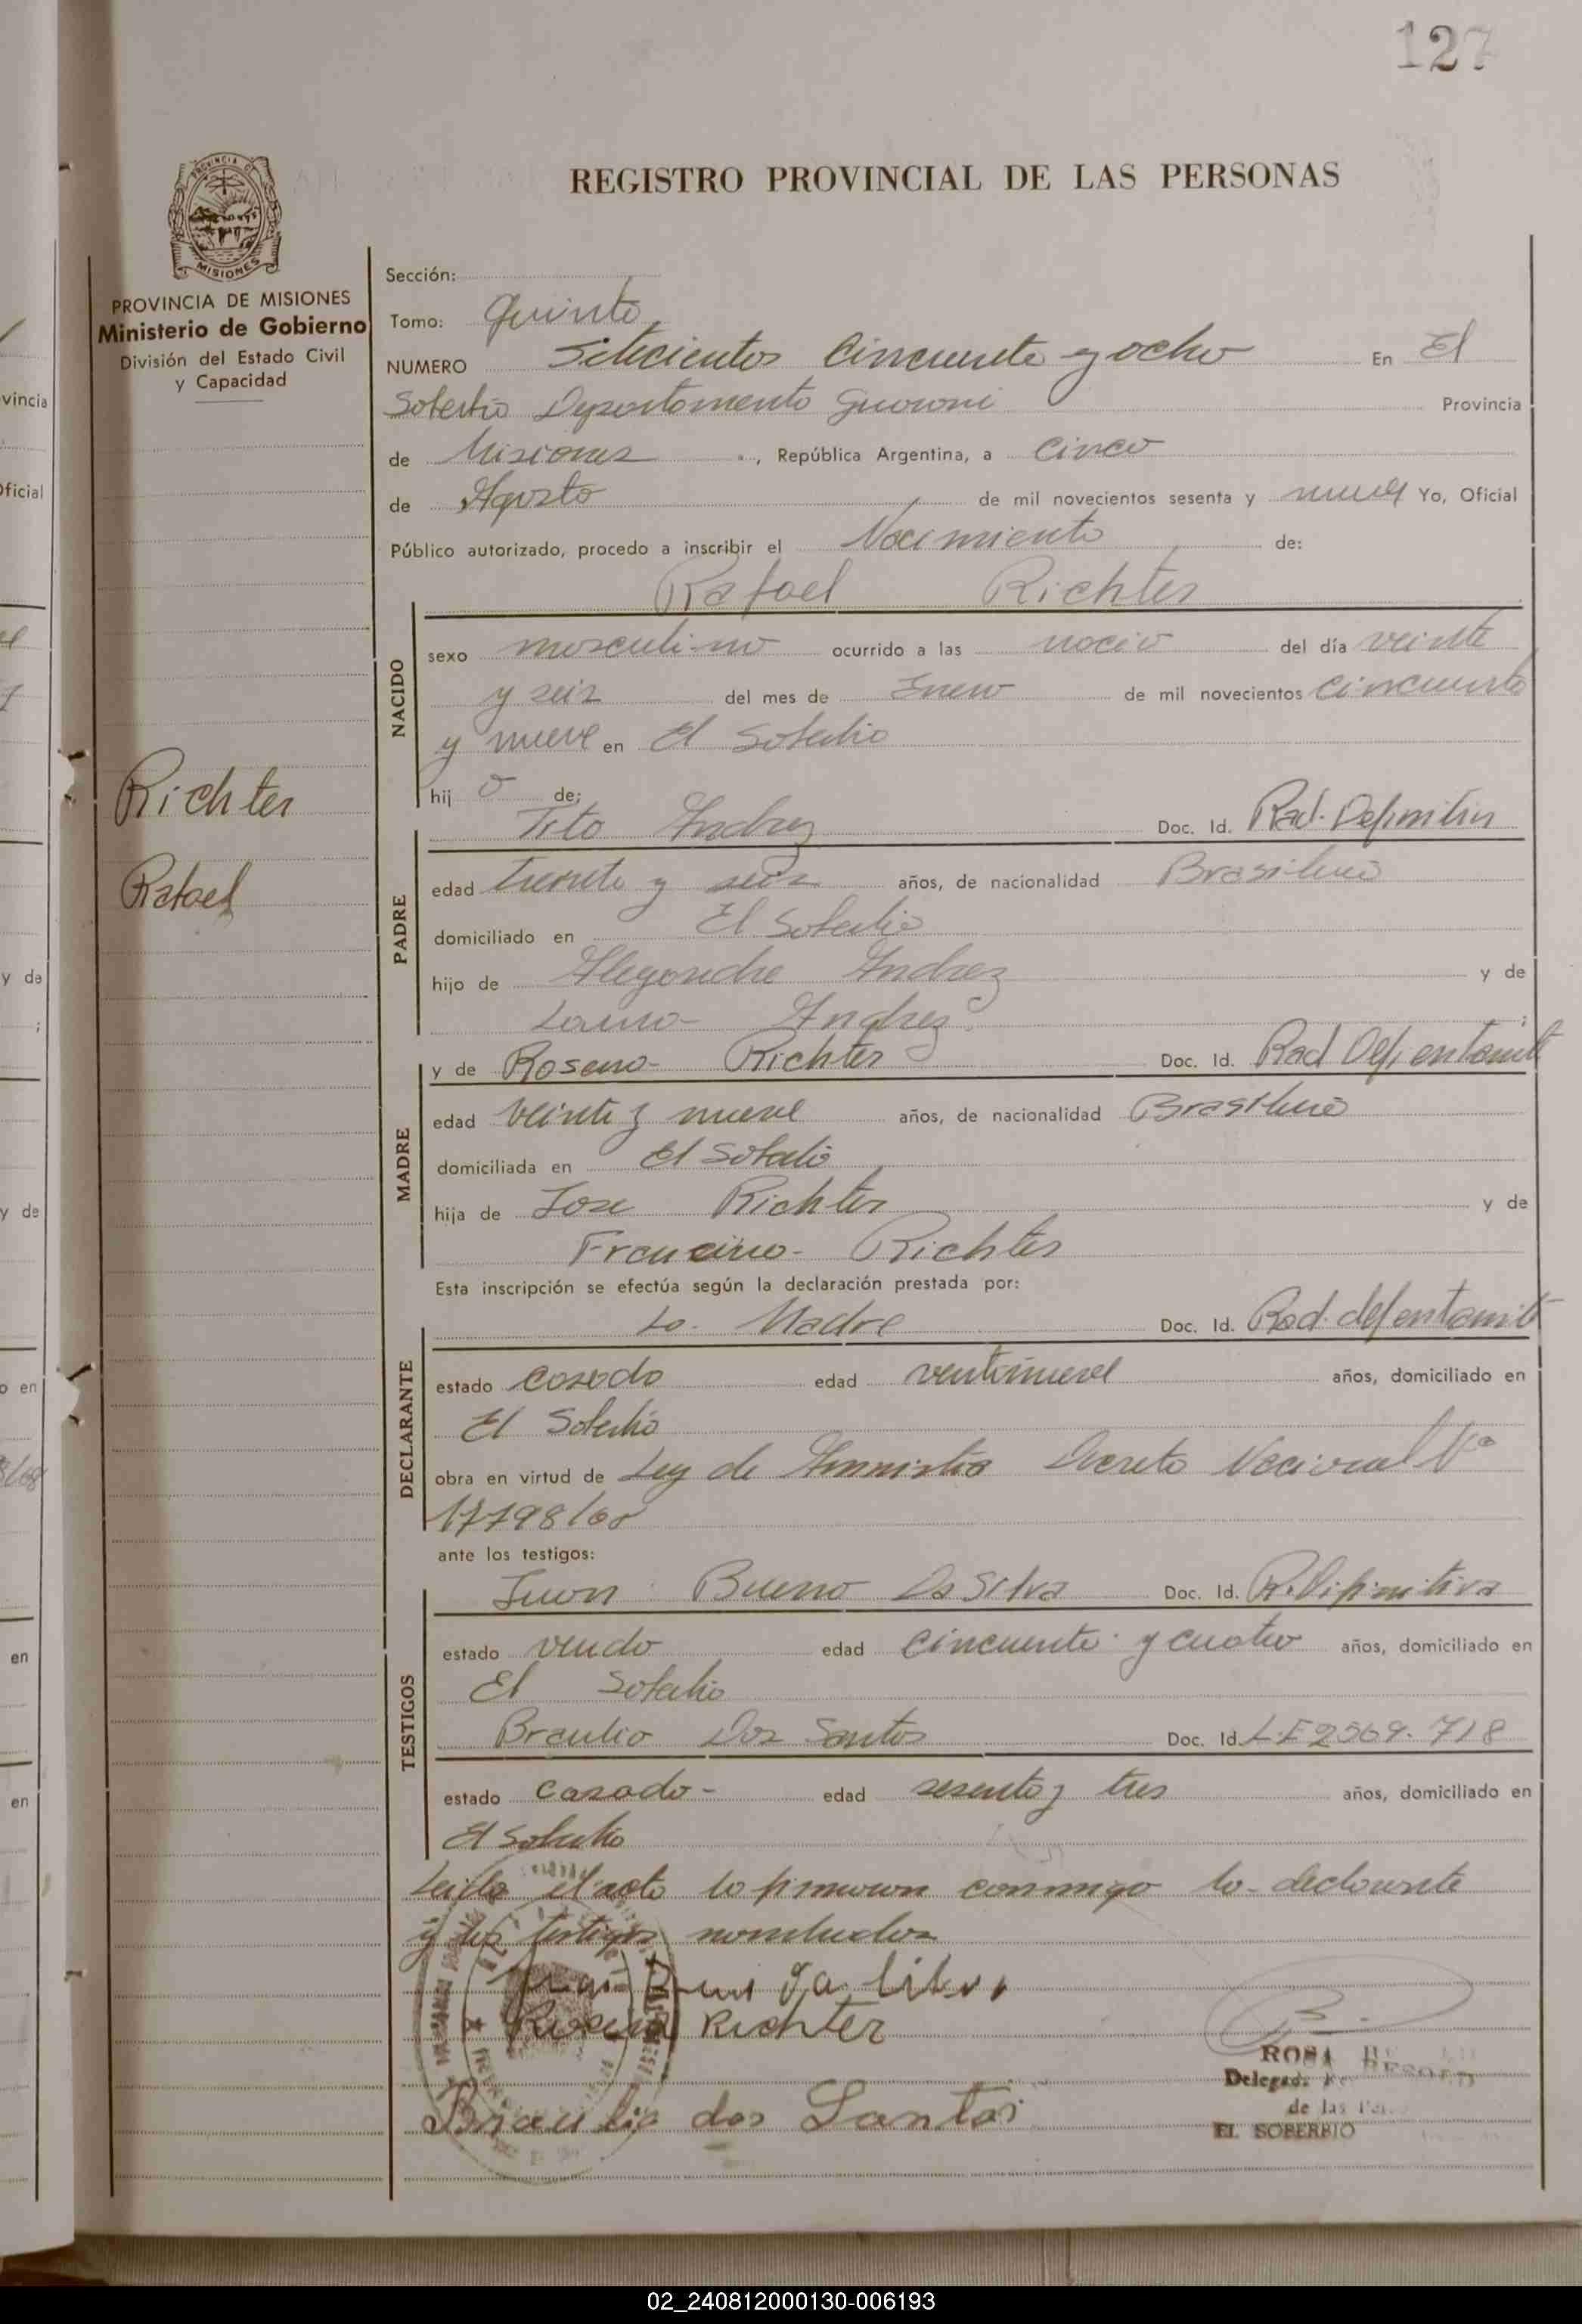 127
PROVINCIA DE
MISIONES
REGISTRO PROVINCIAL DE LAS PERSONAS
PROVINCIA DE MISIONES
Ministerio de Gobierno
División del Estado Civil
y Capacidad
Richter
Rafael
Sección:
Tomo: Quinto
NUMERO Setecientos Cincuenta y ocho En El
Soberbio Departamento Guarani Provincia
de Misiones, República Argentina, a Cinco
de Agosto de mil novecientos sesenta y nueve Yo, Oficial
Público autorizado, procedo a inscribir el Nacimiento de:
Rafael Richter
NACIDO
sexo masculino ocurrido a las nació del día veinte
y seis del mes de Enero de mil novecientos cincuenta
y nueve en El Soberbio
hij o de:
Tito Andrez Doc. Id. Rad. Definitiv
PADRE
edad treinta y seis años, de nacionalidad Brasilera
domiciliado en El Soberbio
hijo de Alejandre Andrez y de
Laura Andrez ;
y de Rosena Richter Doc. Id. Rad Def. en tamit
MADRE
edad veinte y nueve años, de nacionalidad Brasilera
domiciliada en El Soberbio
hija de Jose Richter y de
Francisca Richter
Esta inscripción se efectúa según la declaración prestada por:
La Madre Doc. Id. Rad. def en tamit
DECLARANTE
estado casada edad ventinueve años, domiciliado en
El Soberbio
obra en virtud de Ley de Amnistia Decreto Nacional Nº
17798/68
ante los testigos:
Juan Bueno Da Silva Doc. Id. R. Difinitiva
TESTIGOS
estado viudo edad cincuenta y cuatro años, domiciliado en
El Soberbio
Braulio Dos Santos Doc. Id. L.E 2569.718
estado casado - edad sesenta y tres años, domiciliado en
El Soberbio
Leida el acta lo firmaron conmigo la declarante
y los testigos nombrados
da
Richter
Braulio dos Santos
ROSA
Delegada
de las
EL SOBERBIO
vincia
Oficial
y de
;
y de
o en
en
en
02_240812000130-006193